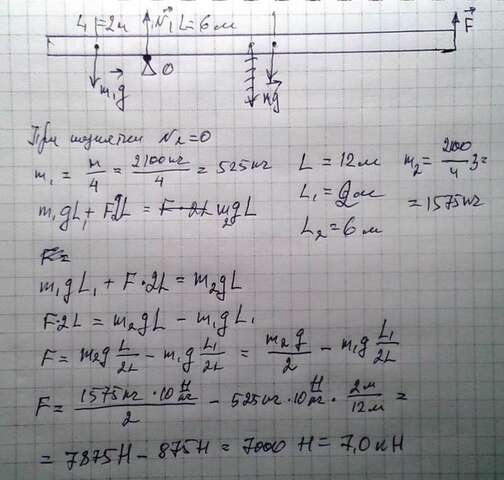 L₁=2м N₁ L=6м F
m₁g O mg
При поднятии N₂=0
m₁ = m/4 = 2100кг/4 = 525кг L = 12м m₂ = 2100/4 · 3 =
m₁gL₁ + F2L = F·2L m₂gL L₁ = 2м = 1575кг
L₂ = 6м
F=
m₁gL₁ + F·2L = m₂gL
F·2L = m₂gL − m₁gL₁
F = m₂g L/2L − m₁g L₁/2L = m₂g/2 − m₁g L₁/2L
F = 1575кг·10 Н/кг / 2 − 525кг·10 Н/кг · 2м/12м =
= 7875Н − 875Н = 7000 Н = 7,0 кН